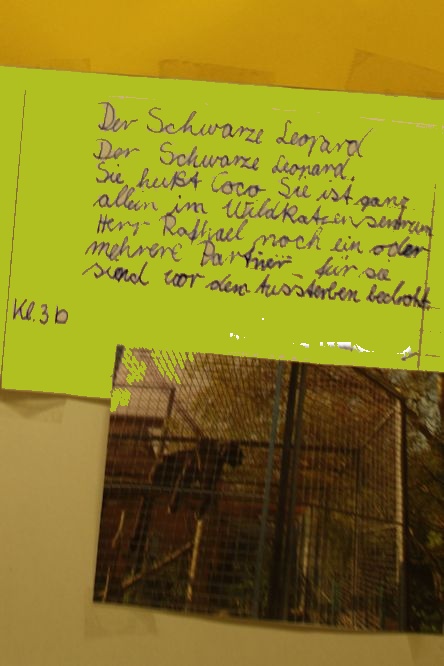 Der Schwarze Leopard
Der Schwarze Leopard.
Sie heißt Coco Sie ist ganz
allein im Wildkatzenzentrum
Herr Raffael noch ein oder
mehrere Partner für sie
siend vor dem Aussterben bedroht.
Kl. 3b